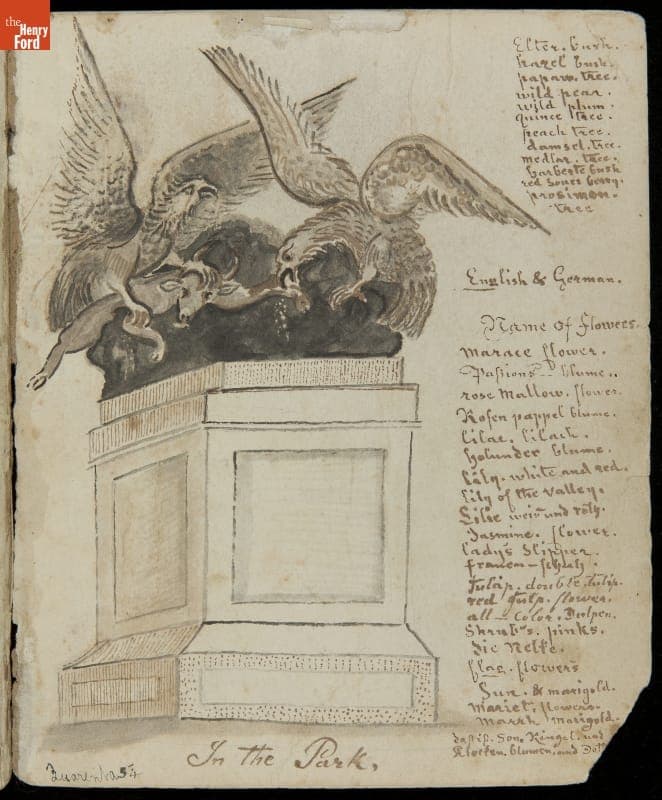 the
Henry
Ford
Elter. bush.
hazel bush.
papaw. tree.
wild pear.
wild plum.
quince tree.
peach tree.
damsel. tree.
medlar. tree.
barberte bush
red Soues berry.
prosimon.
tree
English & German.
Name of Flowers.
marace flower.
Pasions blume..
rose Mallow. flower.
Rosen pappel blume.
lilac. lilach.
holunder blume.
Lily. white and red.
Lily of the valley.
Lilie weis und roth.
Jasmine. flower.
lady's Slipper.
frauen-schuh.
Tulip. double tulip.
red Tulp. flower.
all-color. Dulpen.
Shrub's. pinks.
Die Nelke.
flag. flowers
Sun. & marigold.
Mariet. flowers.
Marsh Marigold.
das ist. Son. Ringel. und
Klocken. blumen. und
In the Park.
54